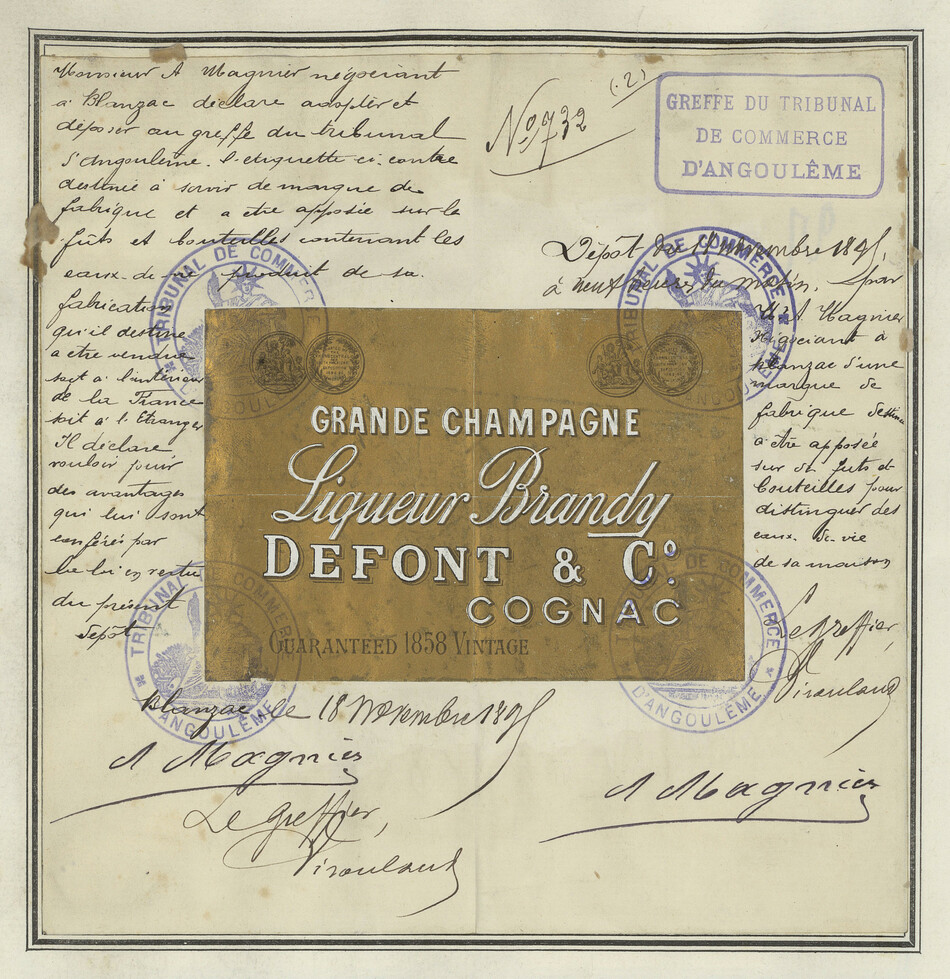 Monsieur A Magnier négociant
à Blanzac déclare adopter et
déposer au greffe du tribunal
d'Angoulème. l'etiquette ci contre
destinée à servir de marque de
fabrique et a etre apposée sur les
fûts et bouteilles contenant les
eaux-de-vie produit de sa
fabrication
qu'il destine
a etre vendue
soit a l'intérieur
de la France
soit à l'Etranger
Il déclare
vouloir jouir
des avantages
qui lui sont
conférés par
la loi en vertu
du présent
dépôt
Blanzac le 18 Novembre 1895
A Magnier
Le Greffier,
(2)
No 732
GREFFE DU TRIBUNAL
DE COMMERCE
D'ANGOULÊME
Dépôt du novembre 1895,
à neuf heures du matin, par
Mr A Magnier
Négociant à
Blanzac d'une
marque de
fabrique destinée
a être apposée
sur de futs et
bouteilles pour
distinguer des
eaux-de-vie
de sa maison
Le Greffier,
A Magnier
GRANDE CHAMPAGNE
Liqueur Brandy
DEFONT & Co.
COGNAC
GUARANTEED 1858 VINTAGE
TRIBUNAL DE COMMERCE
D'ANGOULÊME
TRIBUNAL DE COMMERCE
D'ANGOULÊME
TRIBUNAL DE COMMERCE
D'ANGOULÊME
TRIBUNAL DE COMMERCE
D'ANGOULÊME